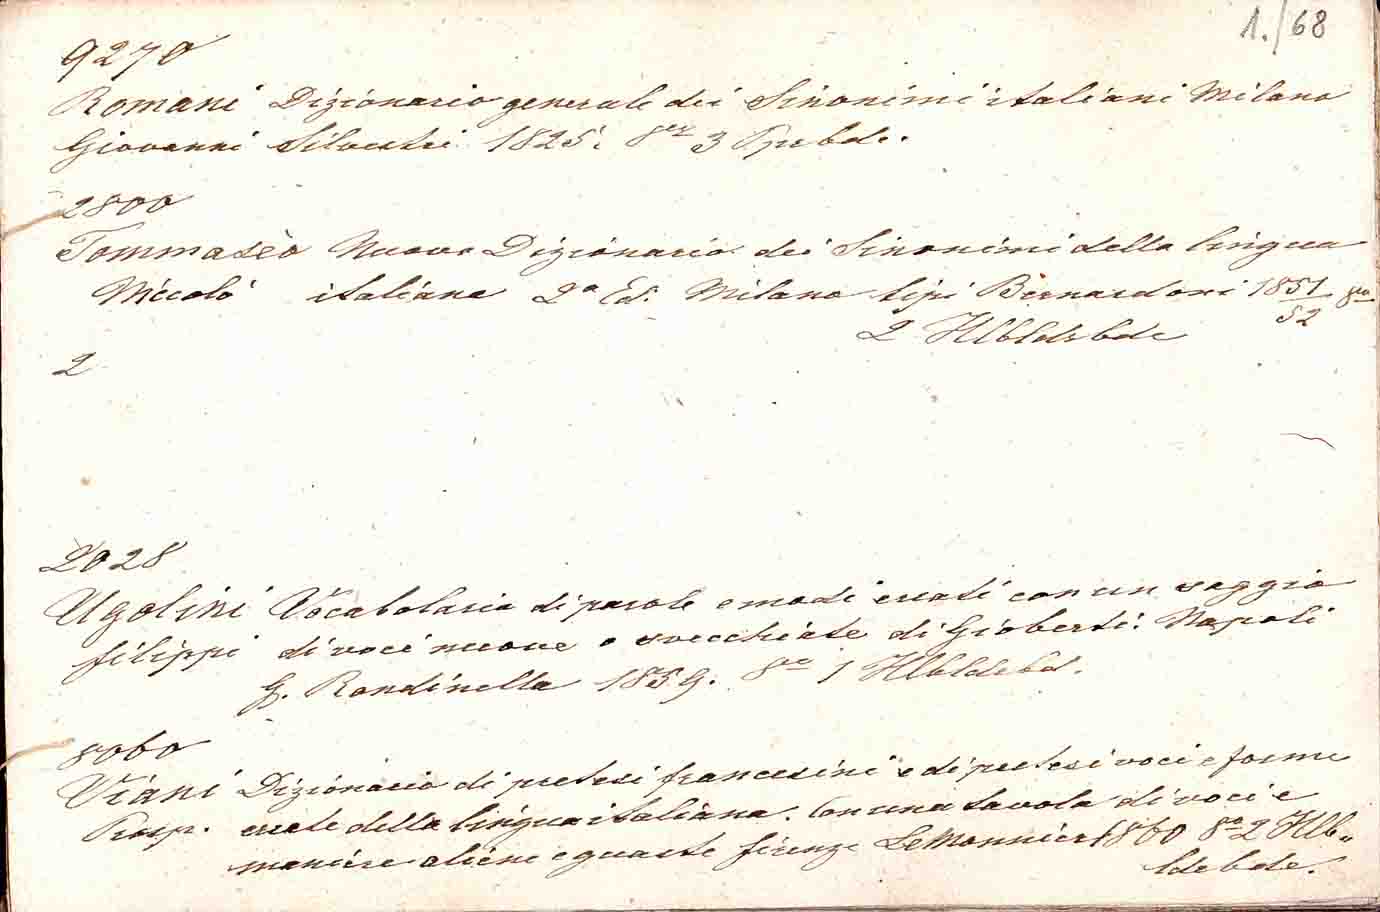 1./68
9270
Romani Dizionario generale dei Sinonimi italiani Milano
Giovanni Silvestri 1825. 8er 3 Ppebde.
2800
Tommasèo Nuovo Dizionario dei Sinonimi della lingua
Niccolò italiana 2a Ed. Milano tipi Bernardoni 1851/52 8vo
2 Hlbldrbde
2
2028
Ugolini Vocabolario di parole e modi errati con un saggio
filippi di voci nuove o svecchiate di Gioberti. Napoli
G. Rondinella 1859. 8vo 1 Hlbldrbd.
8060
Viani Dizionario di pretesi francesini e di pretesi voci e forme
Prosp. errate della lingua italiana. Con una tavola di voci e
maniere aliene e guaste firenze Le Monnier 1860 8o 2 Hlb„
ldrbde.